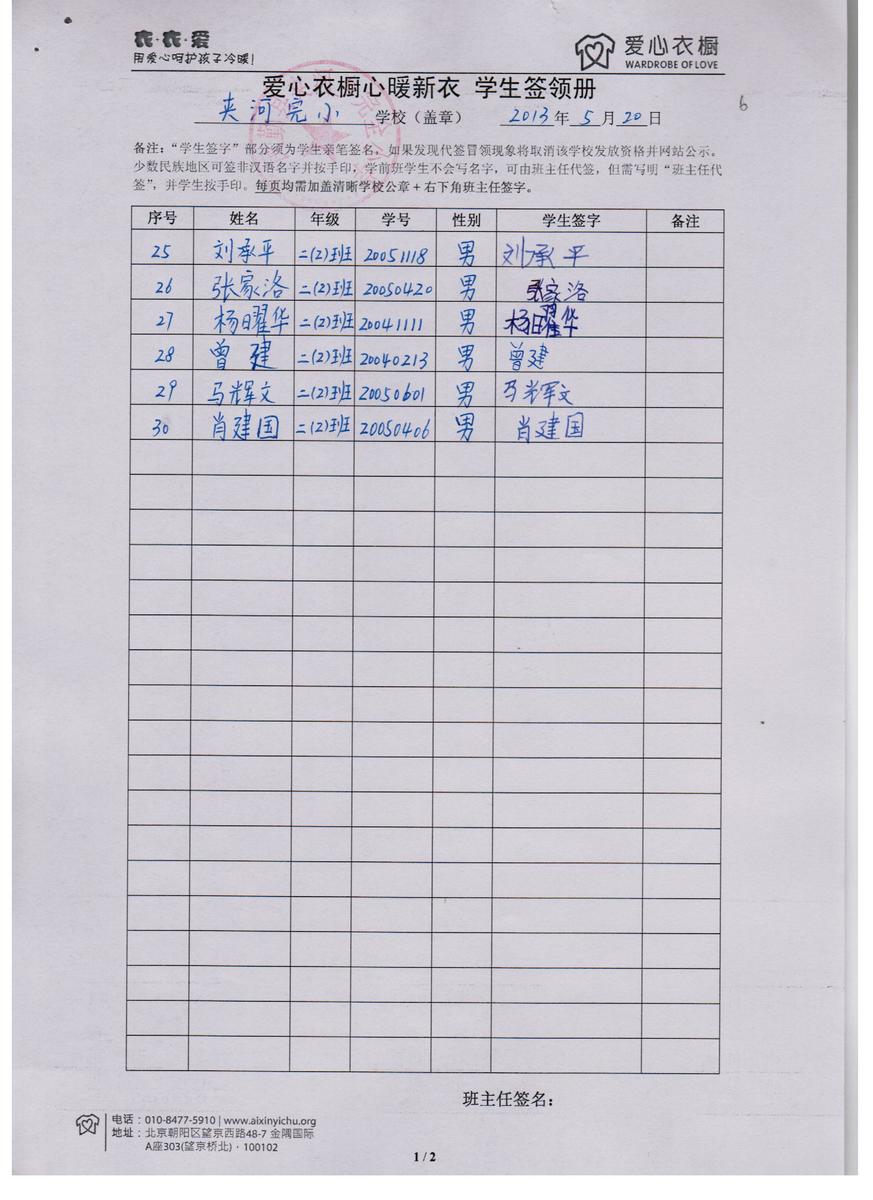 衣·衣·爱
用爱心呵护孩子冷暖!
爱心衣橱
WARDROBE OF LOVE
爱心衣橱心暖新衣 学生签领册
6
夹河完小 学校（盖章） 2013年5月20日
备注：“学生签字”部分须为学生亲笔签名，如果发现代签冒领现象将取消该学校发放资格并网站公示。
少数民族地区可签非汉语名字并按手印，学前班学生不会写名字，可由班主任代签，但需写明“班主任代
签”，并学生按手印。每页均需加盖清晰学校公章+右下角班主任签字。
序号 姓名 年级 学号 性别 学生签字 备注
25 刘承平 二(2)班 20051118 男 刘承平
26 张家洛 二(2)班 20050420 男 张家洛
27 杨曜华 二(2)班 20041111 男 杨曜华
28 曾建 二(2)班 20040213 男 曾建
29 马辉文 二(2)班 20050601 男 马辉文
30 肖建国 二(2)班 20050406 男 肖建国
班主任签名：
电话：010-8477-5910 | www.aixinyichu.org
地址：北京朝阳区望京西路48-7 金隅国际
A座303(望京桥北)·100102
1 / 2